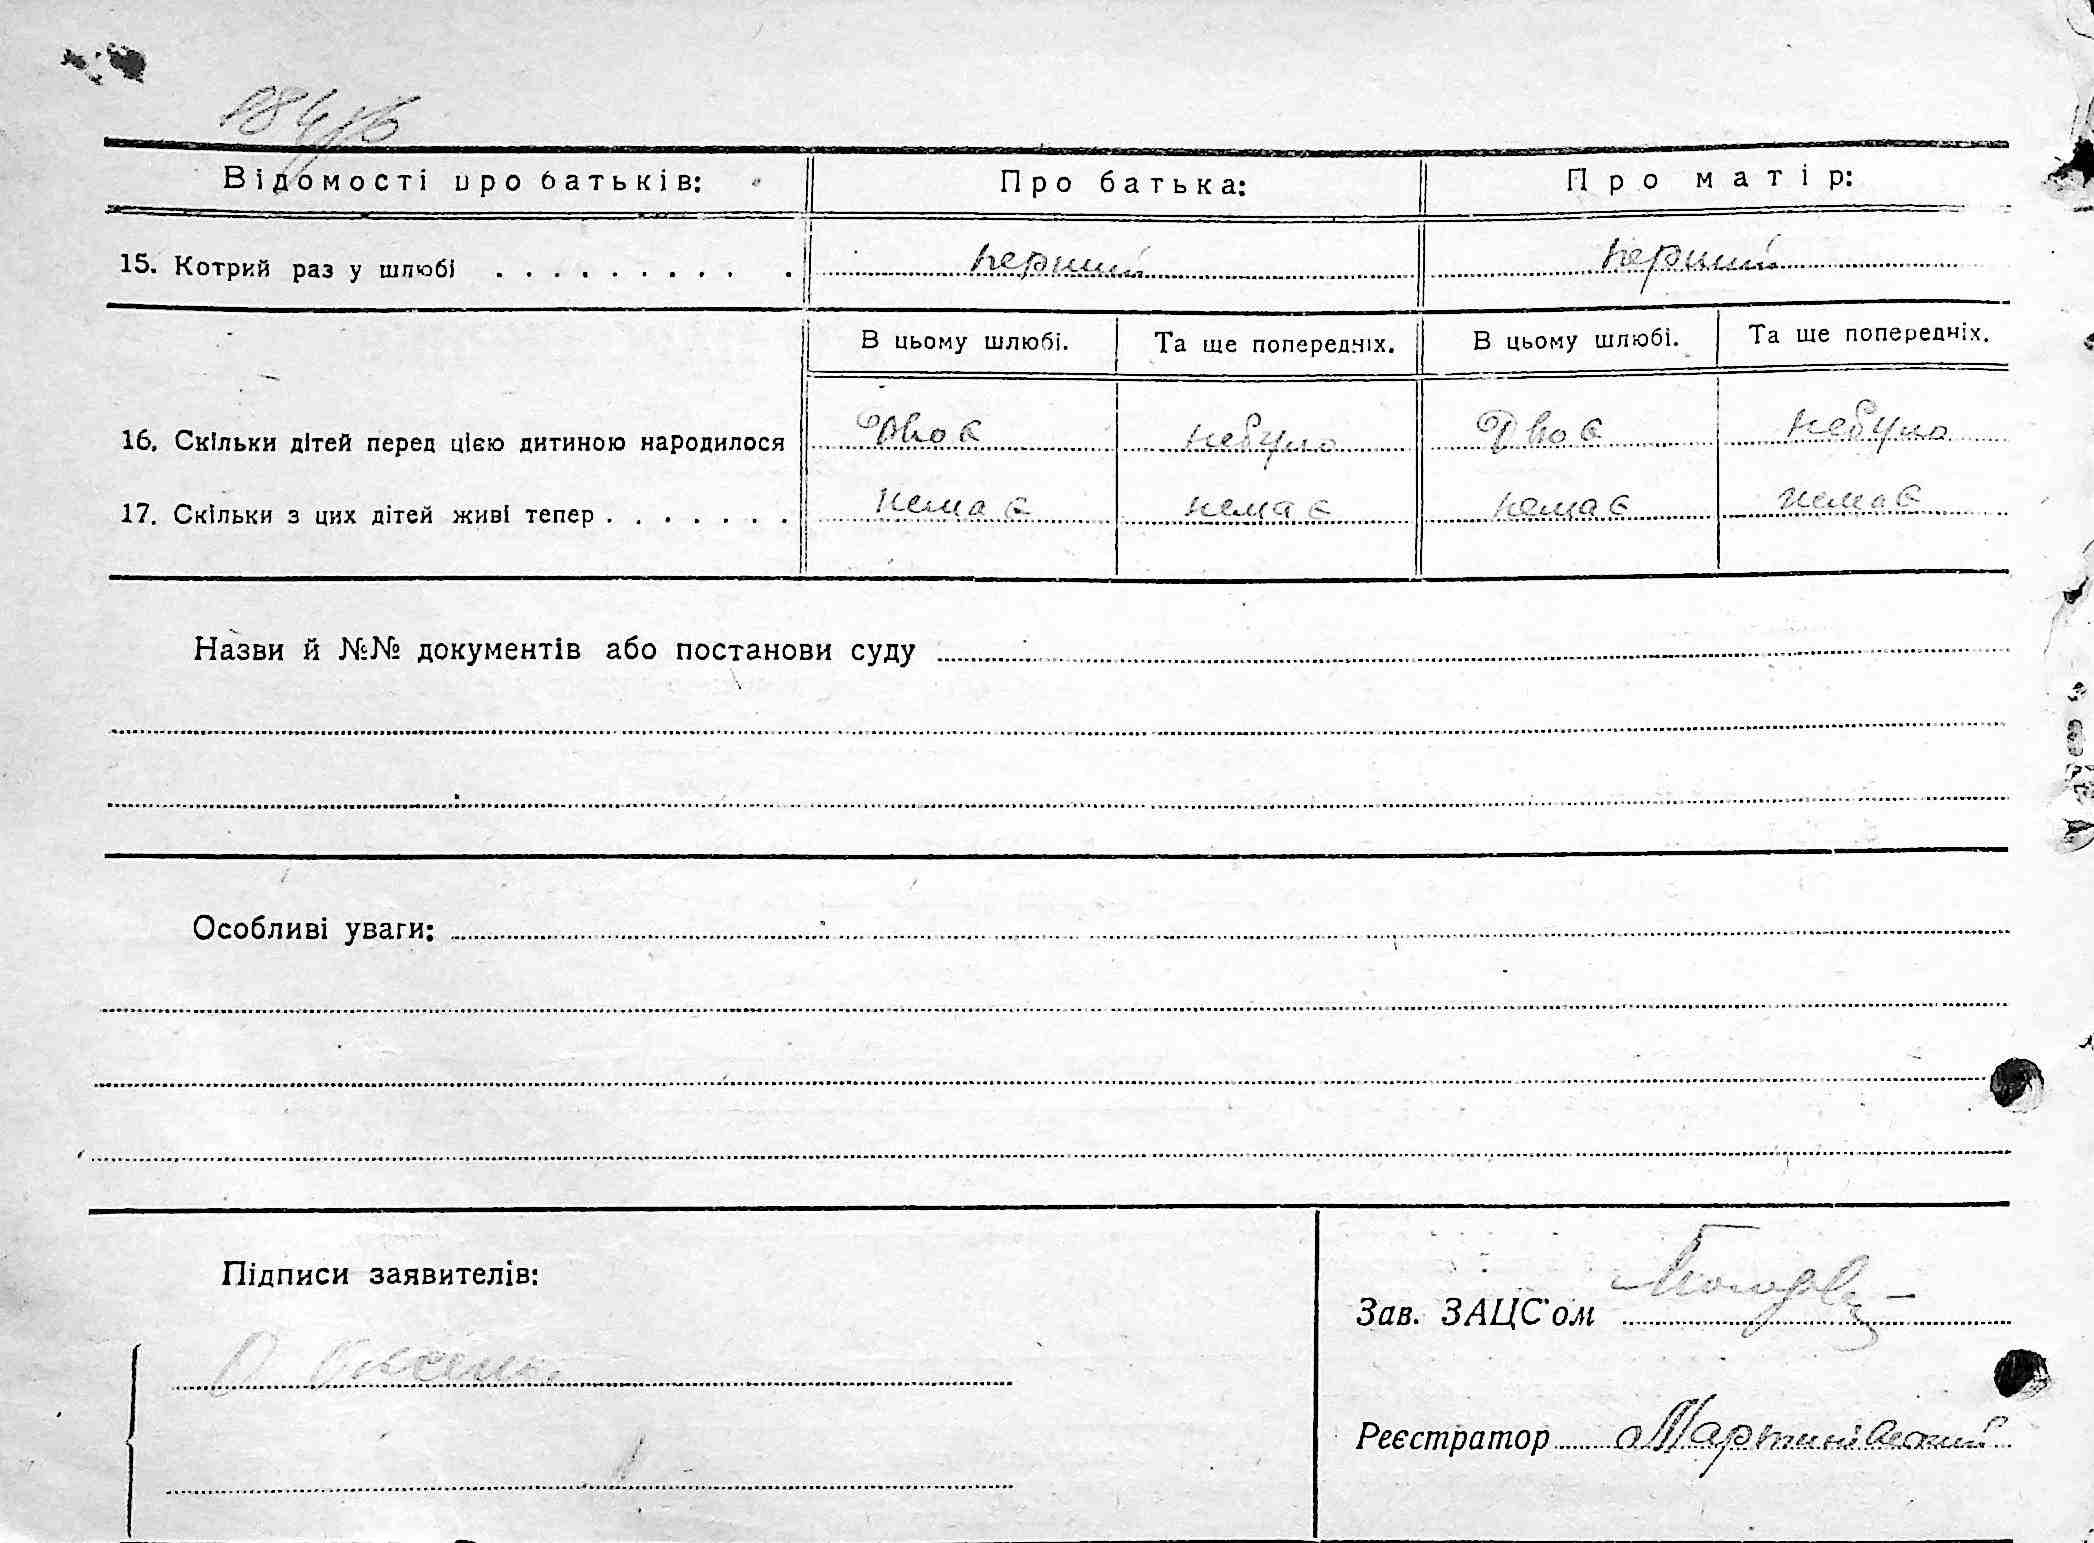 184зв
Відомості про батьків: Про батька: Про матір:
15. Котрий раз у шлюбі . . . . . . . . . . перший перший
В цьому шлюбі. Та ще попередніх. В цьому шлюбі. Та ще попередніх.
16. Скільки дітей перед цією дитиною народилося Двоє небуло Двоє небуло
17. Скільки з цих дітей живі тепер . . . . . . . немає немає немає немає
Назви й №№ документів або постанови суду
Особливі уваги:
Підписи заявителів:
Зав. ЗАЦС'ом
О
Реєстратор Мартинівський